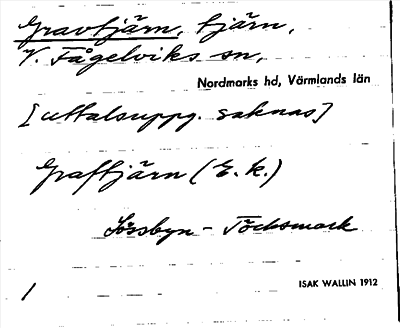 Gravtjärn, tjärn,
V. Fågelviks sn,
Nordmarks hd, Värmlands län
[uttalsuppg. saknas]
Graftjärn (E. k.)
Sössbyn - Töcksmark
ISAK WALLIN 1912
/